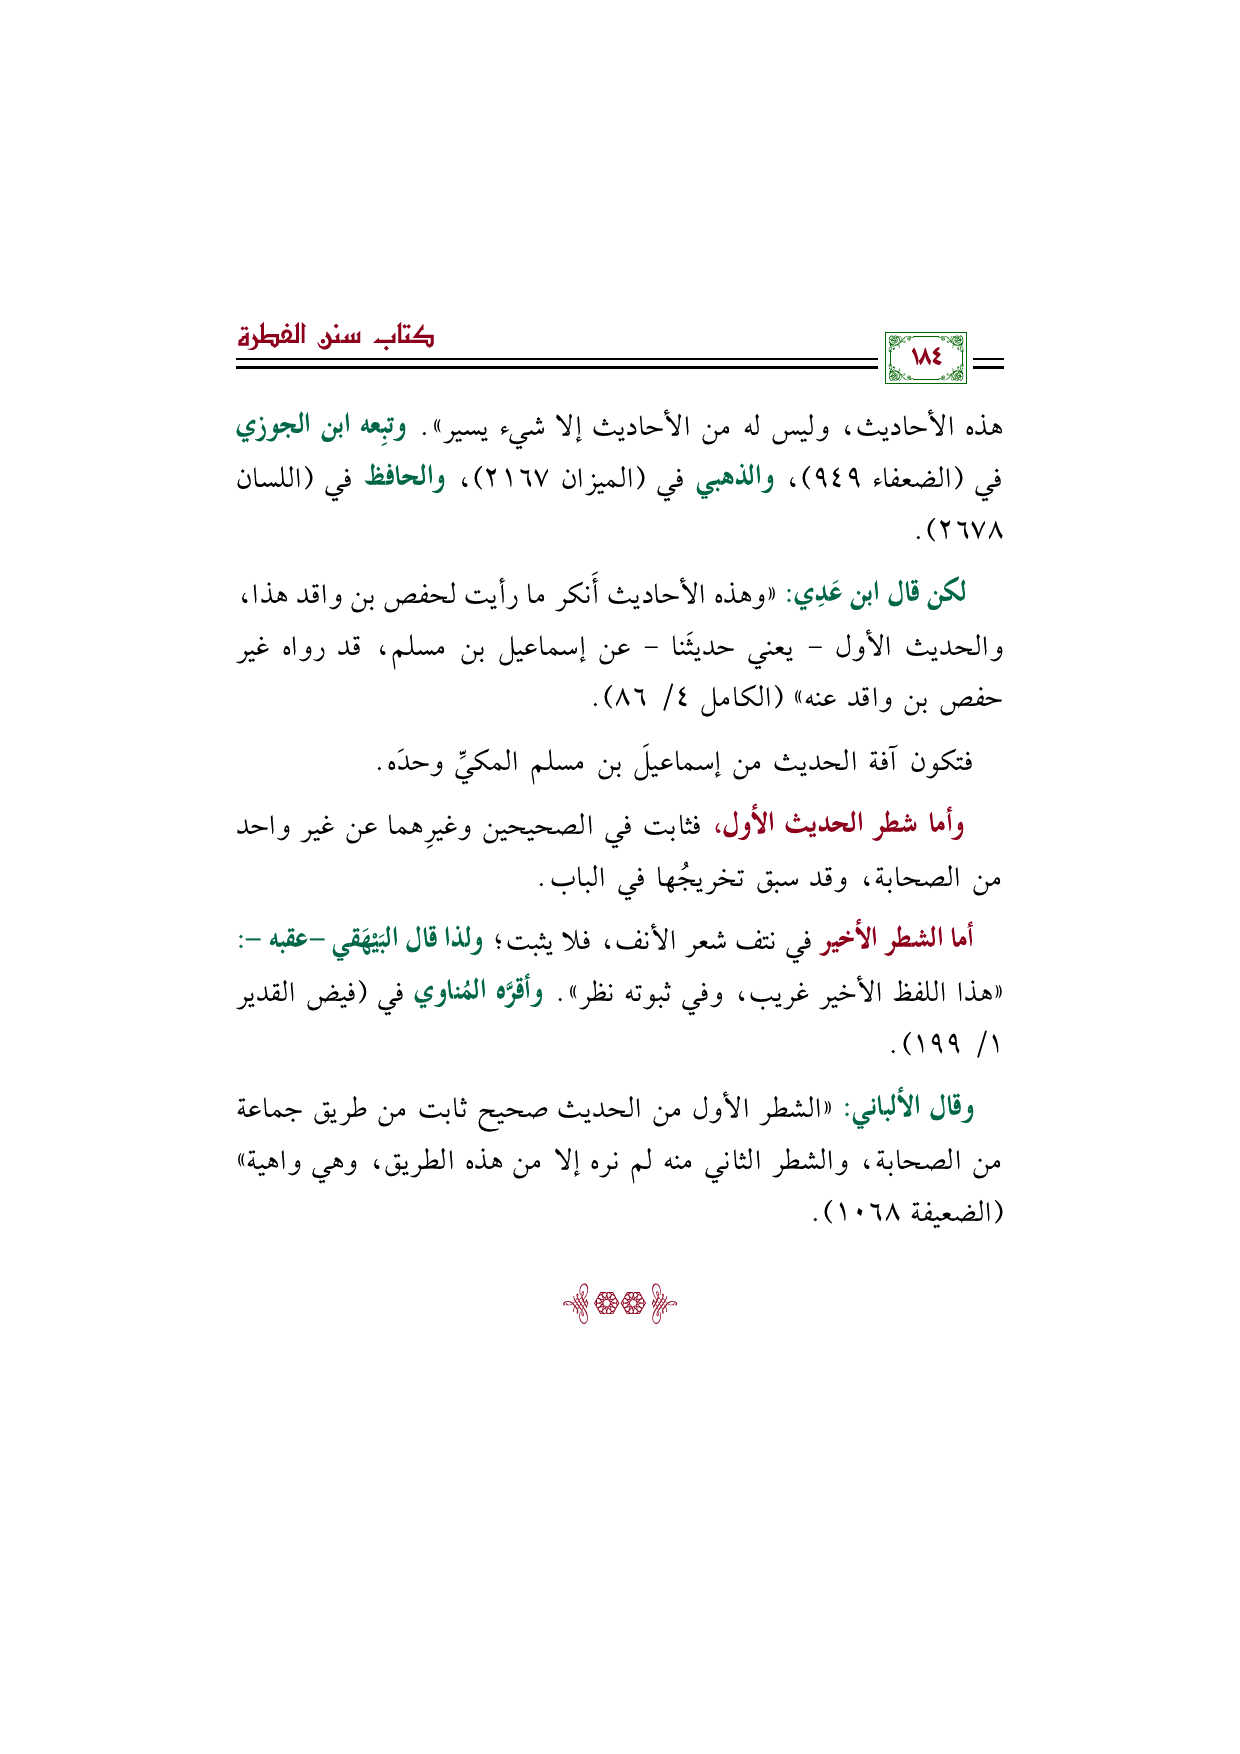 كتاب سنن الفطرة
١٨٤
هذه الأحاديث، وليس له من الأحاديث إلا شيء يسير». وتبِعه ابن الجوزي
في (الضعفاء ٩٤٩)، والذهبي في (الميزان ٢١٦٧)، والحافظ في (اللسان
٢٦٧٨).
لكن قال ابن عَدِي: «وهذه الأحاديث أَنكر ما رأيت لحفص بن واقد هذا،
والحديث الأول – يعني حديثَنا – عن إسماعيل بن مسلم، قد رواه غير
حفص بن واقد عنه» (الكامل ٤/ ٨٦).
فتكون آفة الحديث من إسماعيلَ بن مسلم المكيِّ وحدَه.
وأما شطر الحديث الأول، فثابت في الصحيحين وغيرِهما عن غير واحد
من الصحابة، وقد سبق تخريجُها في الباب.
أما الشطر الأخير في نتف شعر الأنف، فلا يثبت؛ ولذا قال البَيْهَقي –عقبه –:
«هذا اللفظ الأخير غريب، وفي ثبوته نظر». وأقرَّه المُناوي في (فيض القدير
١/ ١٩٩).
وقال الألباني: «الشطر الأول من الحديث صحيح ثابت من طريق جماعة
من الصحابة، والشطر الثاني منه لم نره إلا من هذه الطريق، وهي واهية»
(الضعيفة ١٠٦٨).